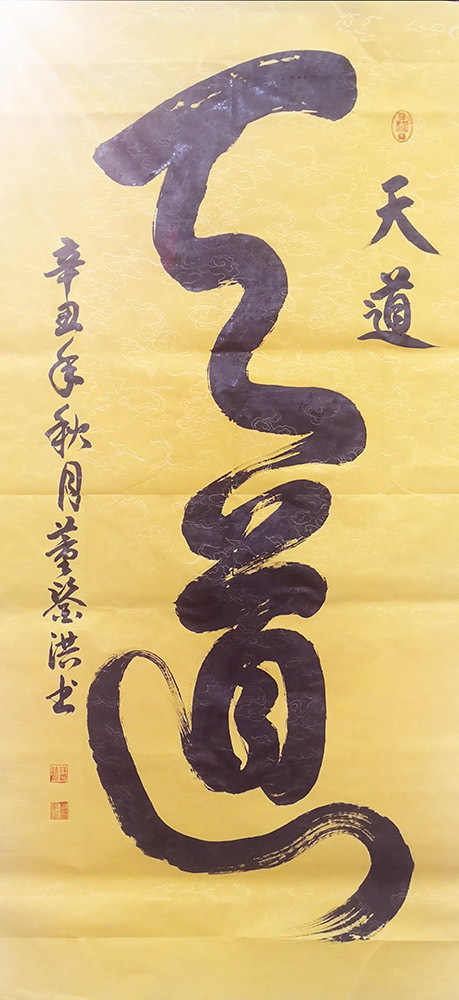 天道
天道
辛丑年秋月董鋆洪书